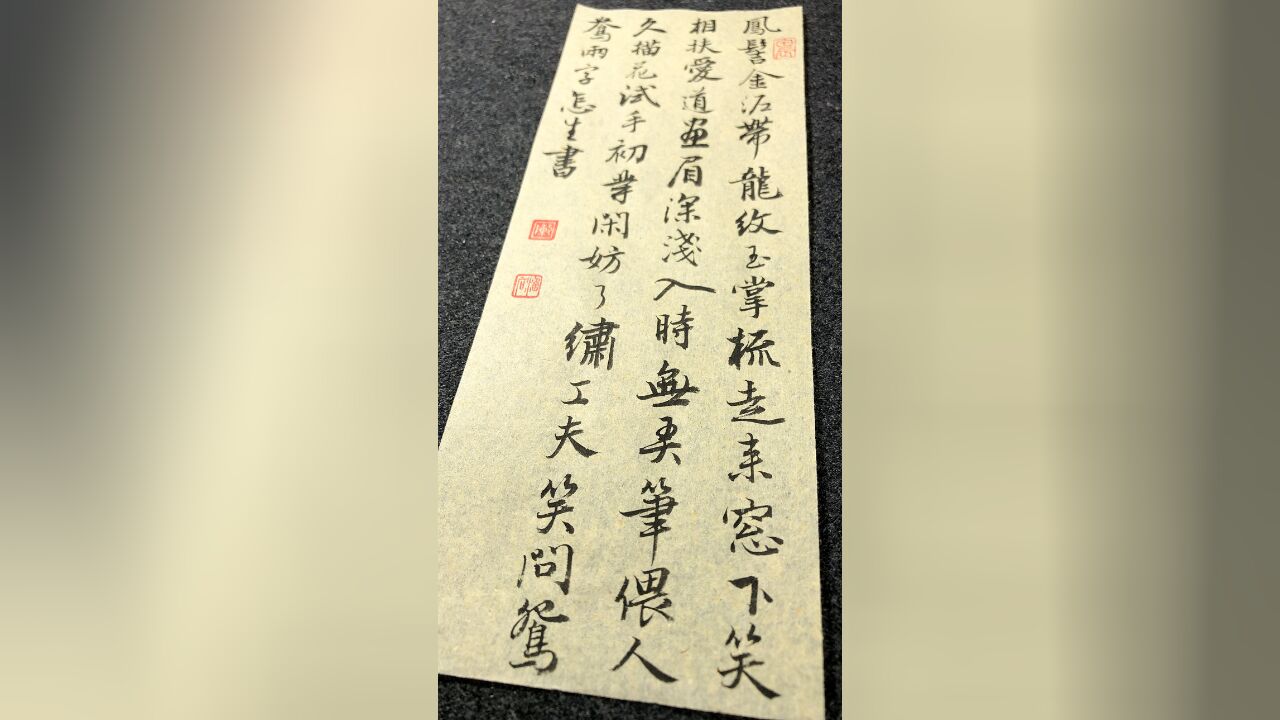 鳳髻金泥帶龍紋玉掌梳走來窓下笑
相扶愛道畫眉深淺入時無弄筆偎人
久描花試手初等閑妨了繡工夫笑問鴛
鴦兩字怎生書